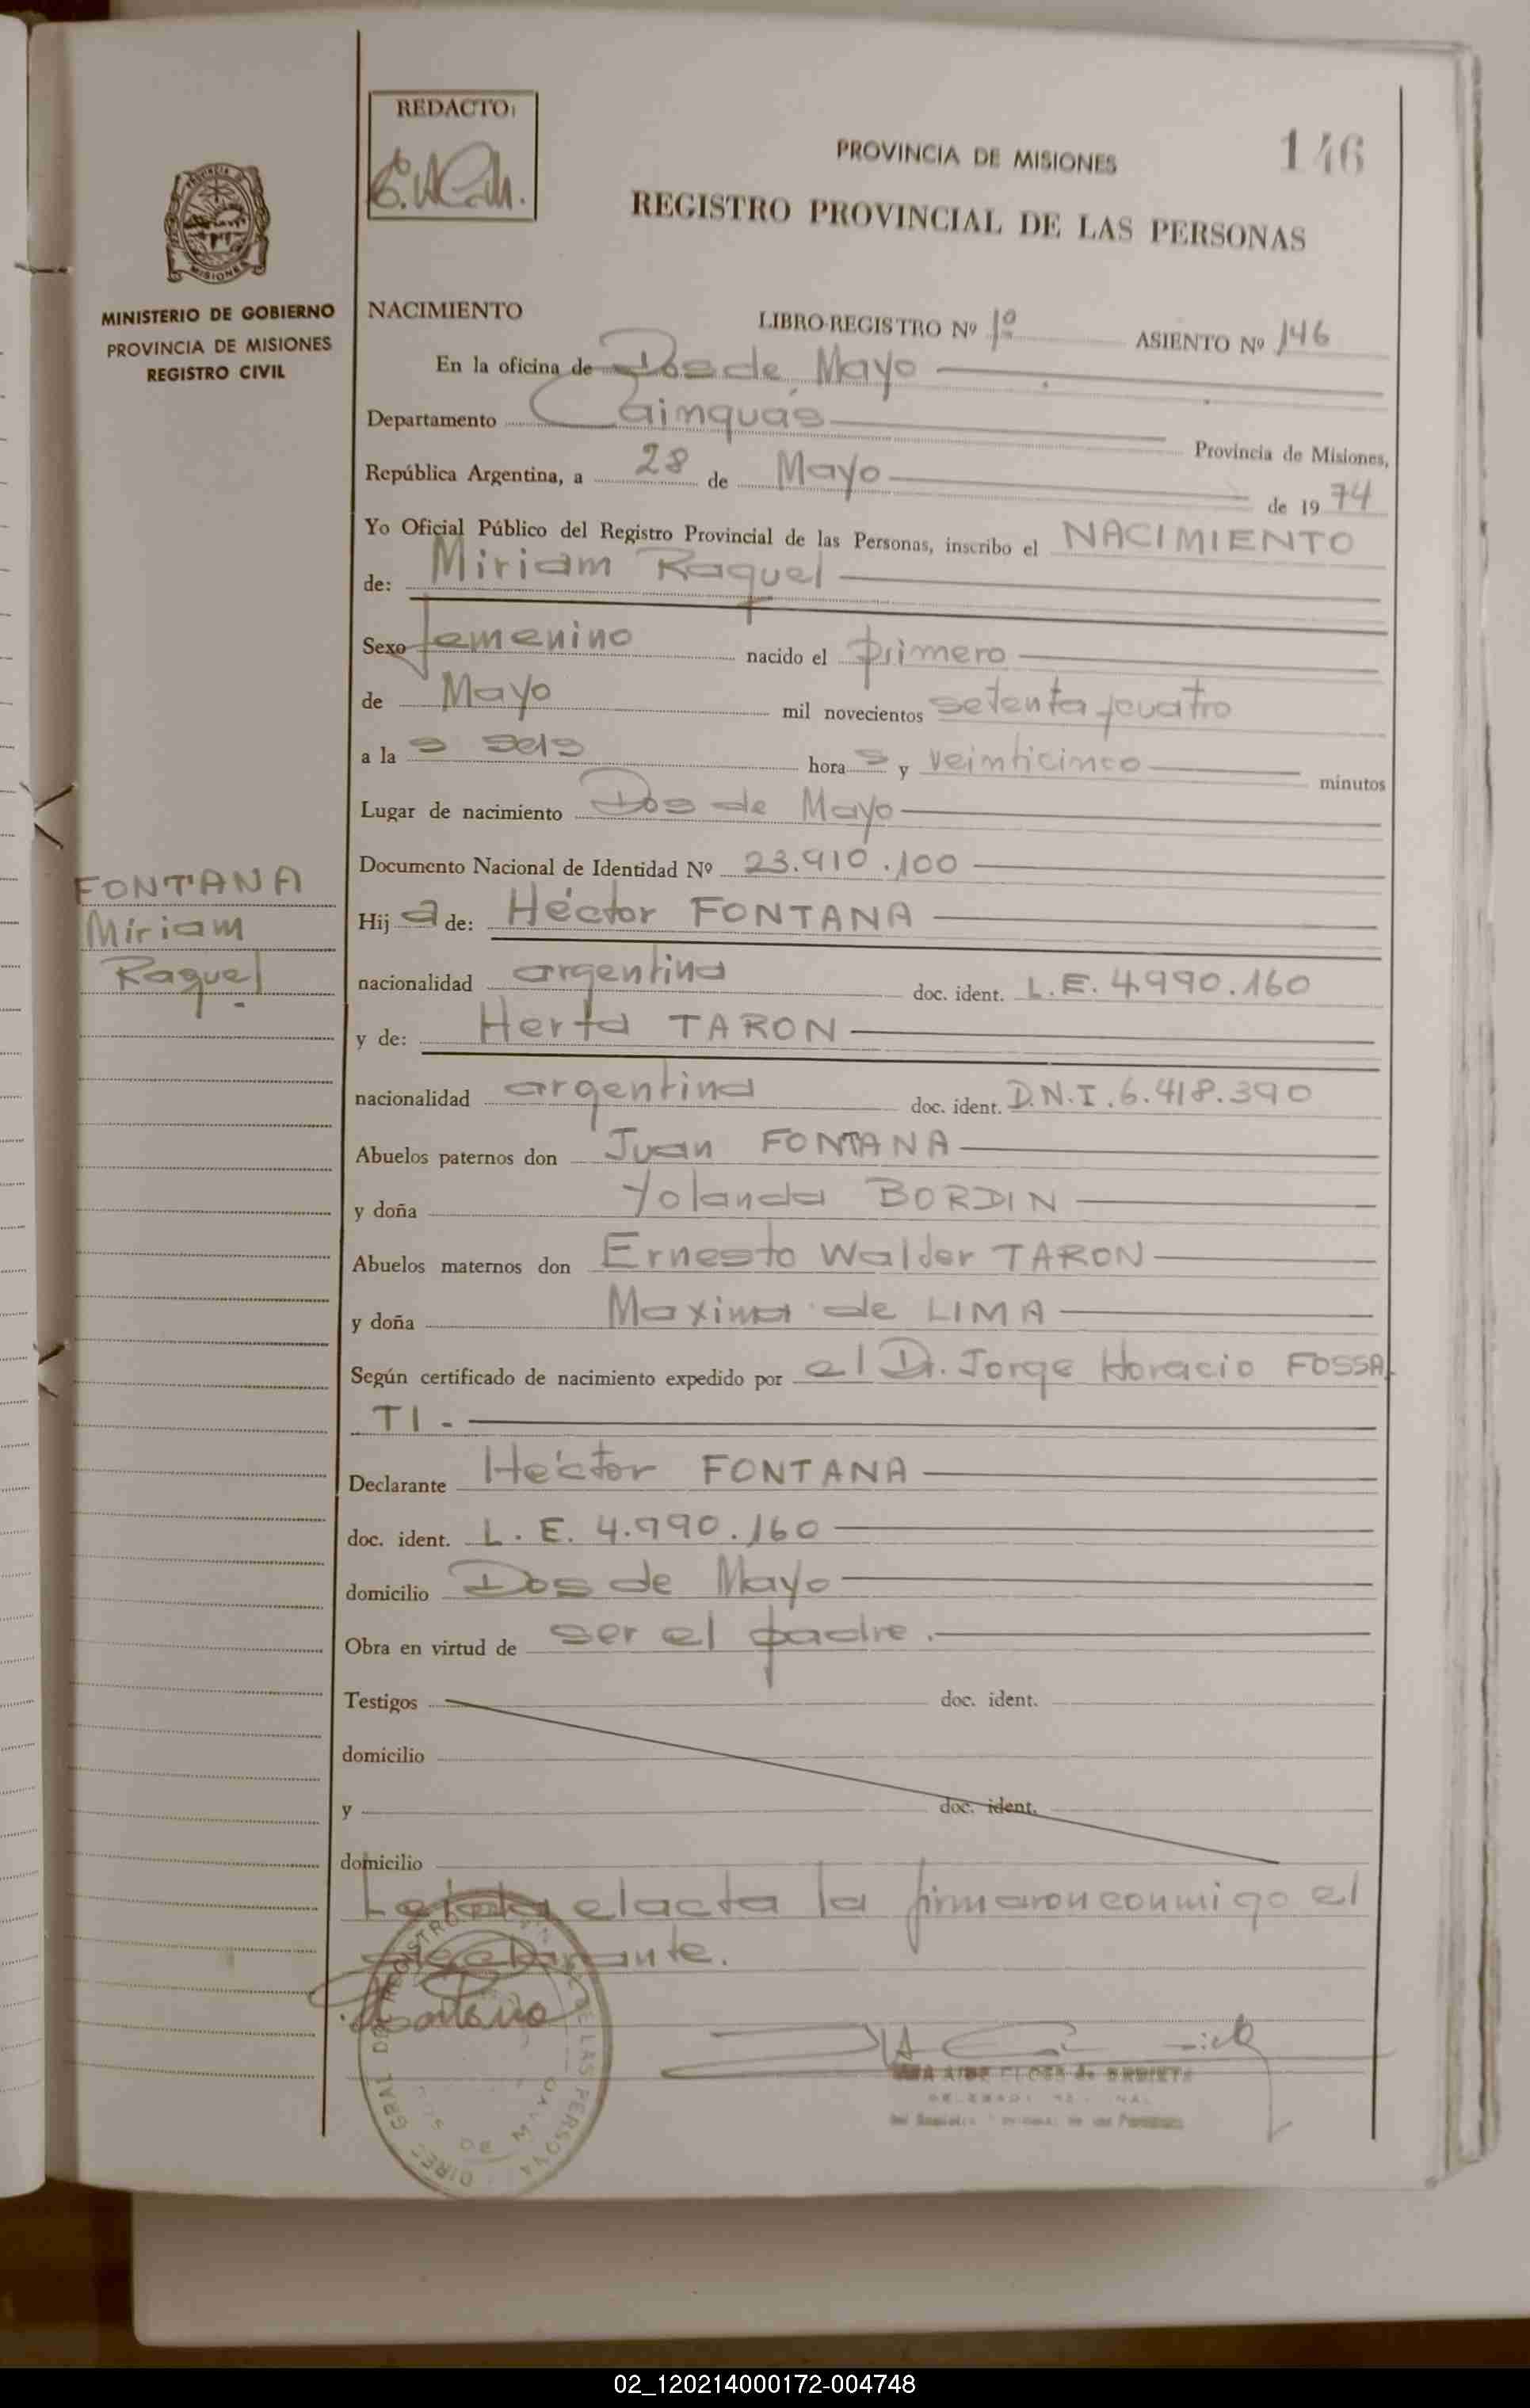 REDACTO:
146
PROVINCIA DE MISIONES
REGISTRO PROVINCIAL DE LAS PERSONAS
MISIONES
MINISTERIO DE GOBIERNO
PROVINCIA DE MISIONES
REGISTRO CIVIL
NACIMIENTO LIBRO-REGISTRO Nº 1º ASIENTO Nº 146
En la oficina de Dos de Mayo
Departamento Cainguás Provincia de Misiones,
República Argentina, a 28 de Mayo de 1974
Yo Oficial Público del Registro Provincial de las Personas, inscribo el NACIMIENTO
de: Miriam Raquel
Sexo femenino nacido el primero
de Mayo mil novecientos setenta y cuatro
a la s seis hora s y veinticinco minutos
Lugar de nacimiento Dos de Mayo
Documento Nacional de Identidad Nº 23.910.100
FONTANA
Miriam
Raquel
Hij a de: Héctor FONTANA
nacionalidad argentina doc. ident. L.E. 4.990.160
y de: Herta TARON
nacionalidad argentina doc. ident. D.N.I. 6.418.390
Abuelos paternos don Juan FONTANA
y doña Yolanda BORDIN
Abuelos maternos don Ernesto Walder TARON
y doña Maxima de LIMA
Según certificado de nacimiento expedido por el Dr. Jorge Horacio FOSSA
TI.-
Declarante Héctor FONTANA
doc. ident. L. E. 4.990.160
domicilio Dos de Mayo
Obra en virtud de ser el padre.
Testigos doc. ident.
domicilio
y doc. ident.
domicilio
Leida el acta la firmaron conmigo el
declarante.
DIREC. GRAL. DEL REGISTRO DE LAS PERSONAS
DOS DE MAYO
02_120214000172-004748